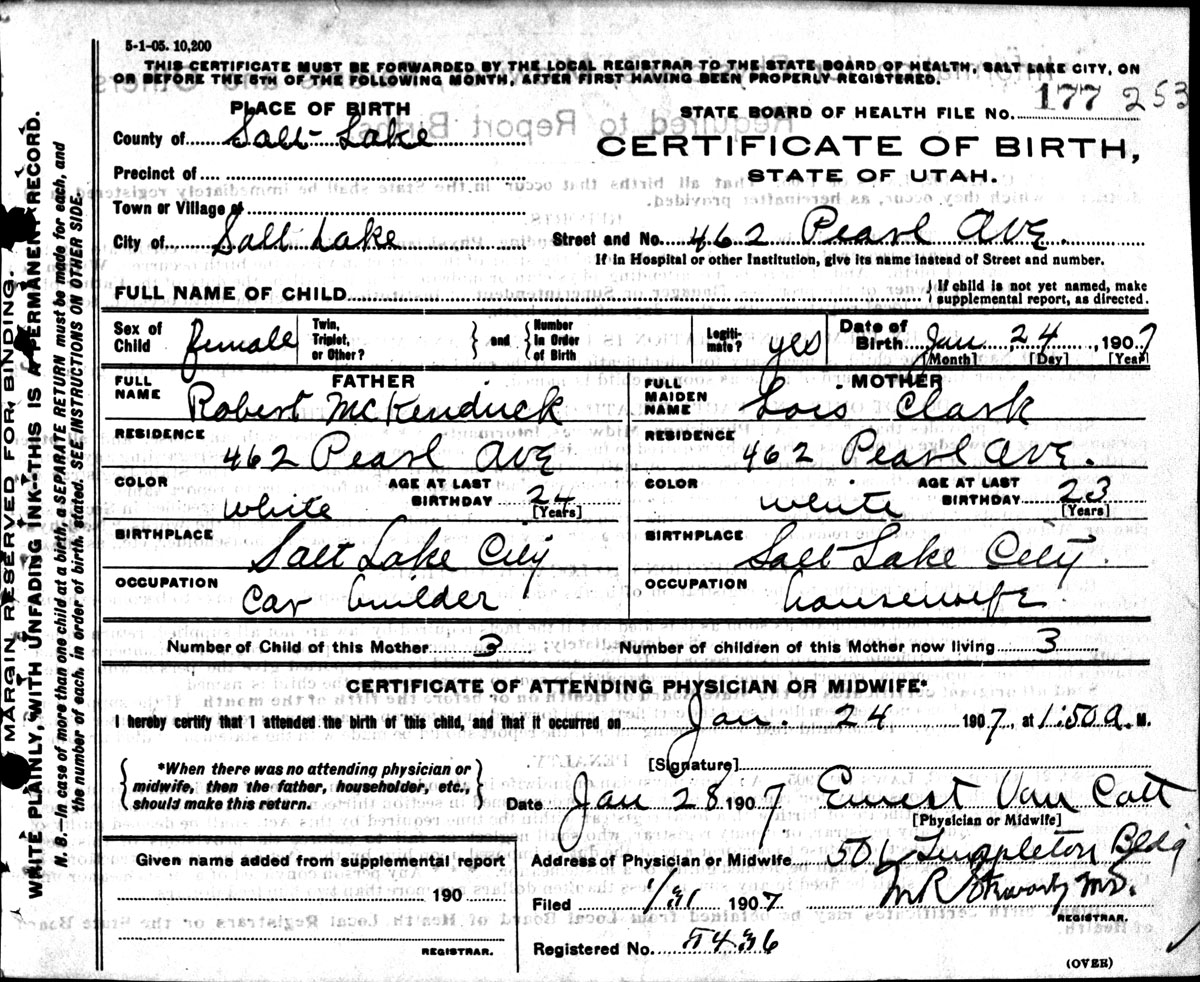 5-1-05. 10,200
THIS CERTIFICATE MUST BE FORWARDED BY THE LOCAL REGISTRAR TO THE STATE BOARD OF HEALTH, SALT LAKE CITY, ON
OR BEFORE THE 5TH OF THE FOLLOWING MONTH, AFTER FIRST HAVING BEEN PROPERLY REGISTERED.
PLACE OF BIRTH
STATE BOARD OF HEALTH FILE No. 177 253
County of Salt Lake
CERTIFICATE OF BIRTH,
STATE OF UTAH.
Precinct of
Town or Village of
City of Salt Lake
Street and No. 462 Pearl Ave.
If in Hospital or other Institution, give its name instead of Street and number.
FULL NAME OF CHILD
If child is not yet named, make
supplemental report, as directed.
Sex of Child female
Twin, Triplet, or Other?
and
Number In Order of Birth
Legiti-mate? yes
Date of Birth Jan 24, 1907
[Month] [Day] [Year]
FATHER
FULL NAME Robert McKendrick
RESIDENCE 462 Pearl Ave
COLOR white
AGE AT LAST BIRTHDAY 24
[Years]
BIRTHPLACE Salt Lake City
OCCUPATION Car builder
MOTHER
FULL MAIDEN NAME Lois Clark
RESIDENCE 462 Pearl Ave.
COLOR white
AGE AT LAST BIRTHDAY 23
[Years]
BIRTHPLACE Salt Lake City
OCCUPATION housewife
Number of Child of this Mother 3
Number of children of this Mother now living 3
CERTIFICATE OF ATTENDING PHYSICIAN OR MIDWIFE*
I hereby certify that I attended the birth of this child, and that it occurred on Jan. 24 1907, at 1:50 a. M.
*When there was no attending physician or
midwife, then the father, householder, etc.,
should make this return.
[Signature]
Date Jan 28 1907 Ernest Van Cott
[Physician or Midwife]
Given name added from supplemental report
190
REGISTRAR.
Address of Physician or Midwife Templeton Bldg
Filed 1/31 1907 M.D.
REGISTRAR.
Registered No. 5436
(OVER)
MARGIN RESERVED FOR BINDING.
WRITE PLAINLY, WITH UNFADING INK--THIS IS A PERMANENT RECORD.
N. B.—In case of more than one child at a birth, a SEPARATE RETURN must be made for each, and
the number of each, in order of birth, stated. SEE INSTRUCTIONS ON OTHER SIDE.